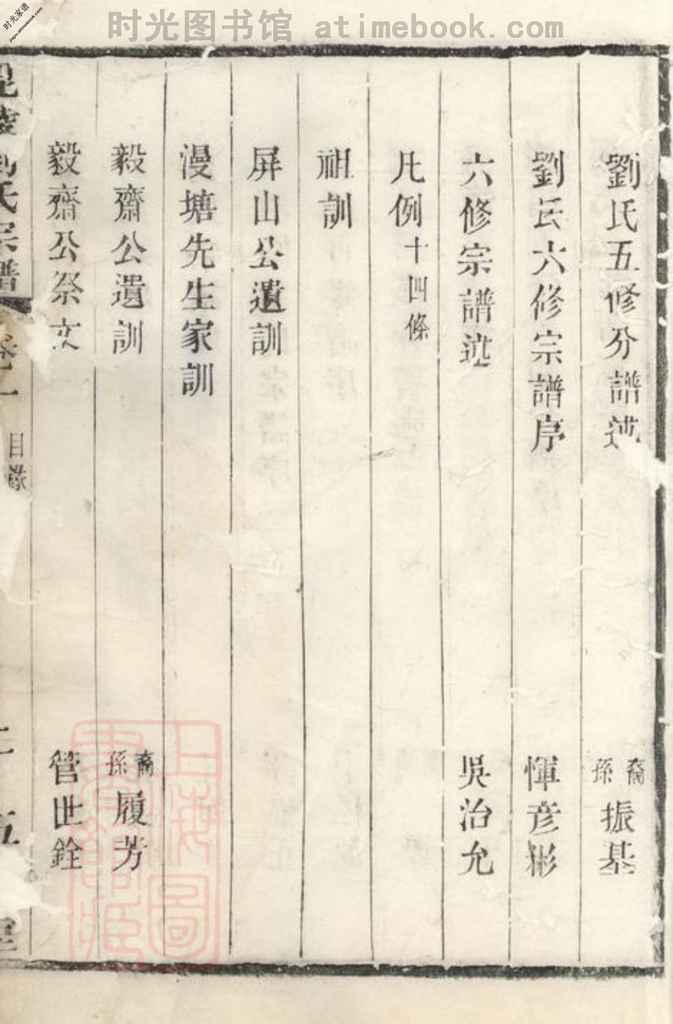 时光图书馆 atimebook.com
时光家谱
劉氏五修分譜述 裔孫振基
劉氏六修宗譜序 惲彦彬
六修宗譜述 吳治允
凡例十四條
祖訓
屏山公遺訓
漫塘先生家訓
毅齋公遺訓 裔孫履芳
毅齋公祭文 管世銓
氏宗譜 卷一 目錄